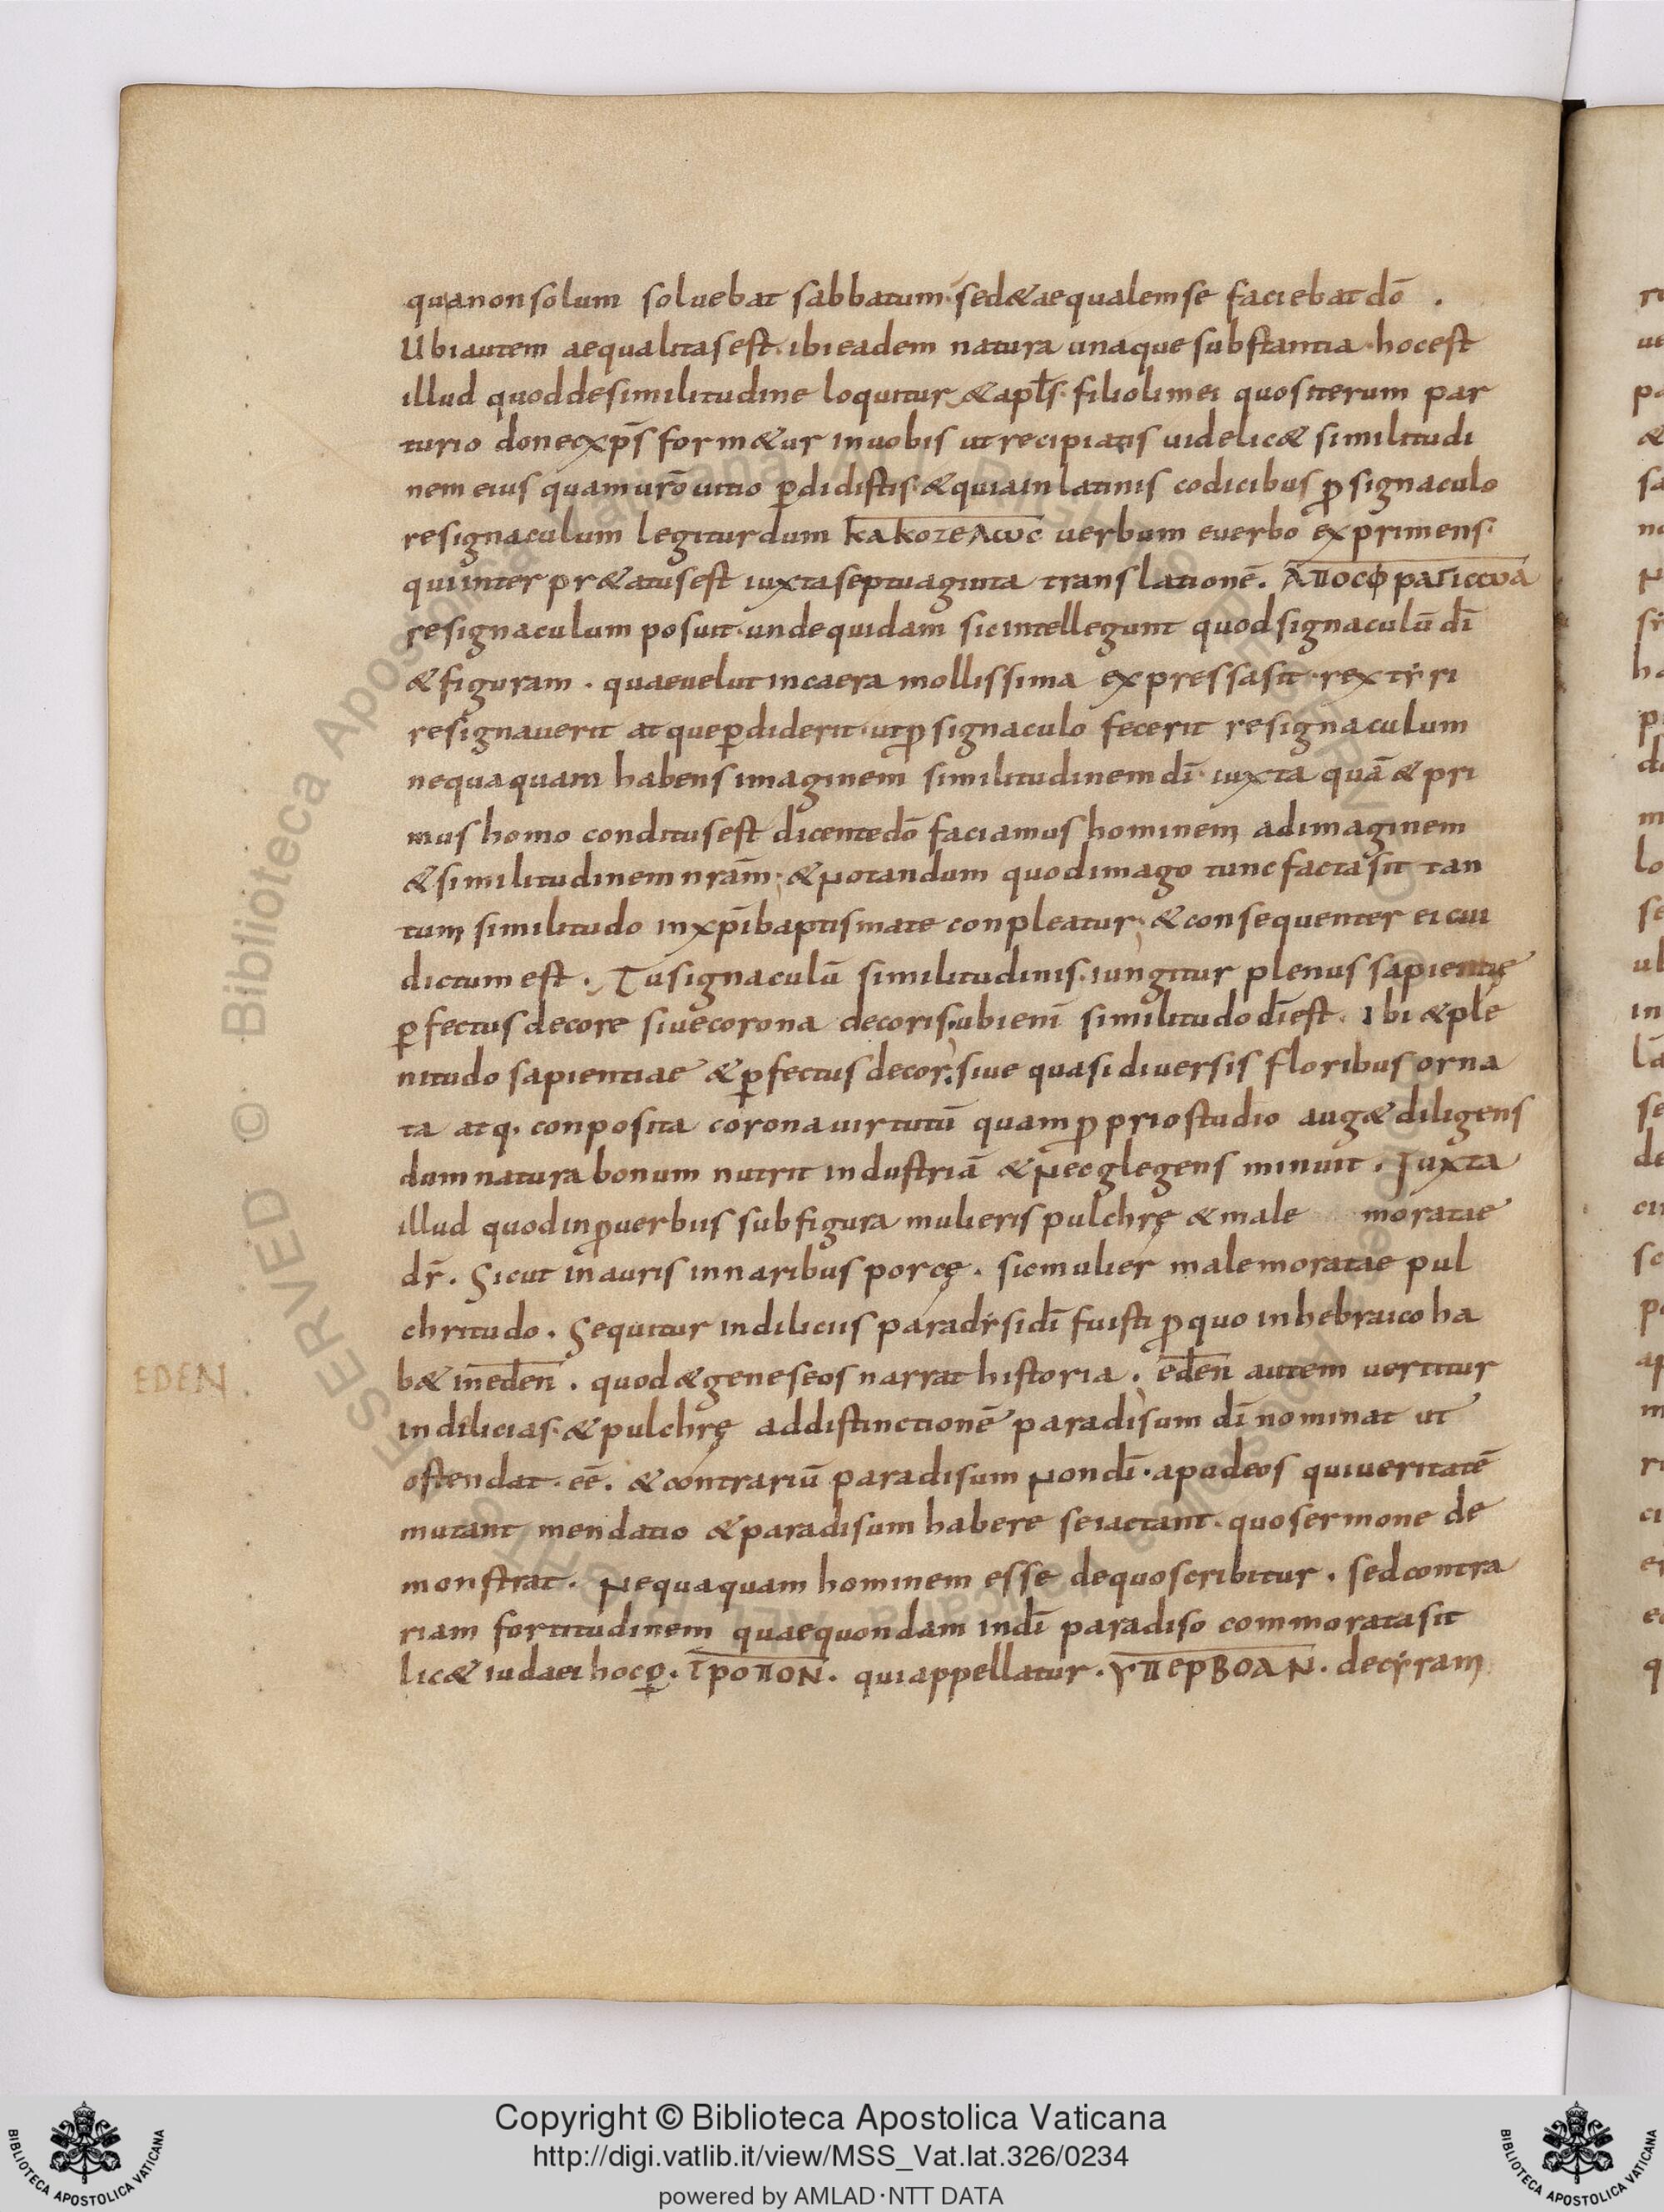 quia non solum soluebat sabbatum· sed & aequalem se faciebat dō .
Ubi autem aequalitas est· ibi eadem natura unaque substantia· hoc est
illud quod de similitudine loquitur & apl̄s· filioli mei quos iterum par
turio donec xp̄s form&ur in uobis ut recipiatis uidelic& similitudi
nem eius quam ur̄o uitio ꝑdidistis· & quia in latinis codicibus ꝓ signaculo
resignaculum legitur dum ΚΑΚΟΖΕΛΩC uerbum e uerbo exprimens·
qui interpr&atus est iuxta septuaginta translationē. ΑΠΟCΦΡΑΓΙCΜΑ
resignaculum posuit· unde quidam sic intellegunt quod signaculū dī
& figuram . quae uelut in caera mollissima expressa sit· rex tẏri
resignauerit atque ꝑdiderit· ut ꝓ signaculo fecerit resignaculum
nequaquam habens imaginem similitudinem dī· iuxta quā & pri
mus homo conditus est dicente dō faciamus hominem ad imaginem
& similitudinem nrām· & Notandum quod imago tunc facta sit tan
tum similitudo in xp̄i baptismate conpleatur· & consequenter ei cui
dictum est . Tu signaculū similitudinis· iungitur plenus sapientię
ꝑfectus decore siue corona decoris· ubi enī similitudo dī est· Ibi & ple
nitudo sapientiae & ꝑfectus decor· siue quasi diuersis floribus orna
ta atq· conposita corona uirtutū quam ꝓprio studio aug& diligens
dum natura bonum nutrit industriā & Neoglegens minuit . Iuxta
illud quod in ꝓuerbiis sub figura mulieris pulchrę & male moratae
dr̄ . Sicut inauris in naribus porcę . sic mulier male moratae pul
chritudo . Sequitur in diliciis paradẏsi dī fuisti ꝓ quo in hebraico ha
b& in eden . quod & geneseos narrat historia . eden autem uertitur
EDEN
in dilicias· & pulchrę ad distinctionē paradisum dī nominat ut
ostendat· eē . & contrariū paradisum Non dī· apud eos qui ueritatē
mutant mendatio & paradisum habere se iactant· quo sermone de
monstrat . Nequaquam hominem esse de quo scribitur . sed contra
riam fortitudinem quae quondam in dī paradiso commorata sit
lic& iudaei hoc ꝑ . ΤΡΟΠΟΝ . qui appellatur . ΥΠΕΡΒΟΛΝ . de cẏram
Copyright © Biblioteca Apostolica Vaticana
http://digi.vatlib.it/view/MSS_Vat.lat.326/0234
powered by AMLAD·NTT DATA
BIBLIOTECA APOSTOLICA VATICANA
BIBLIOTECA APOSTOLICA VATICANA